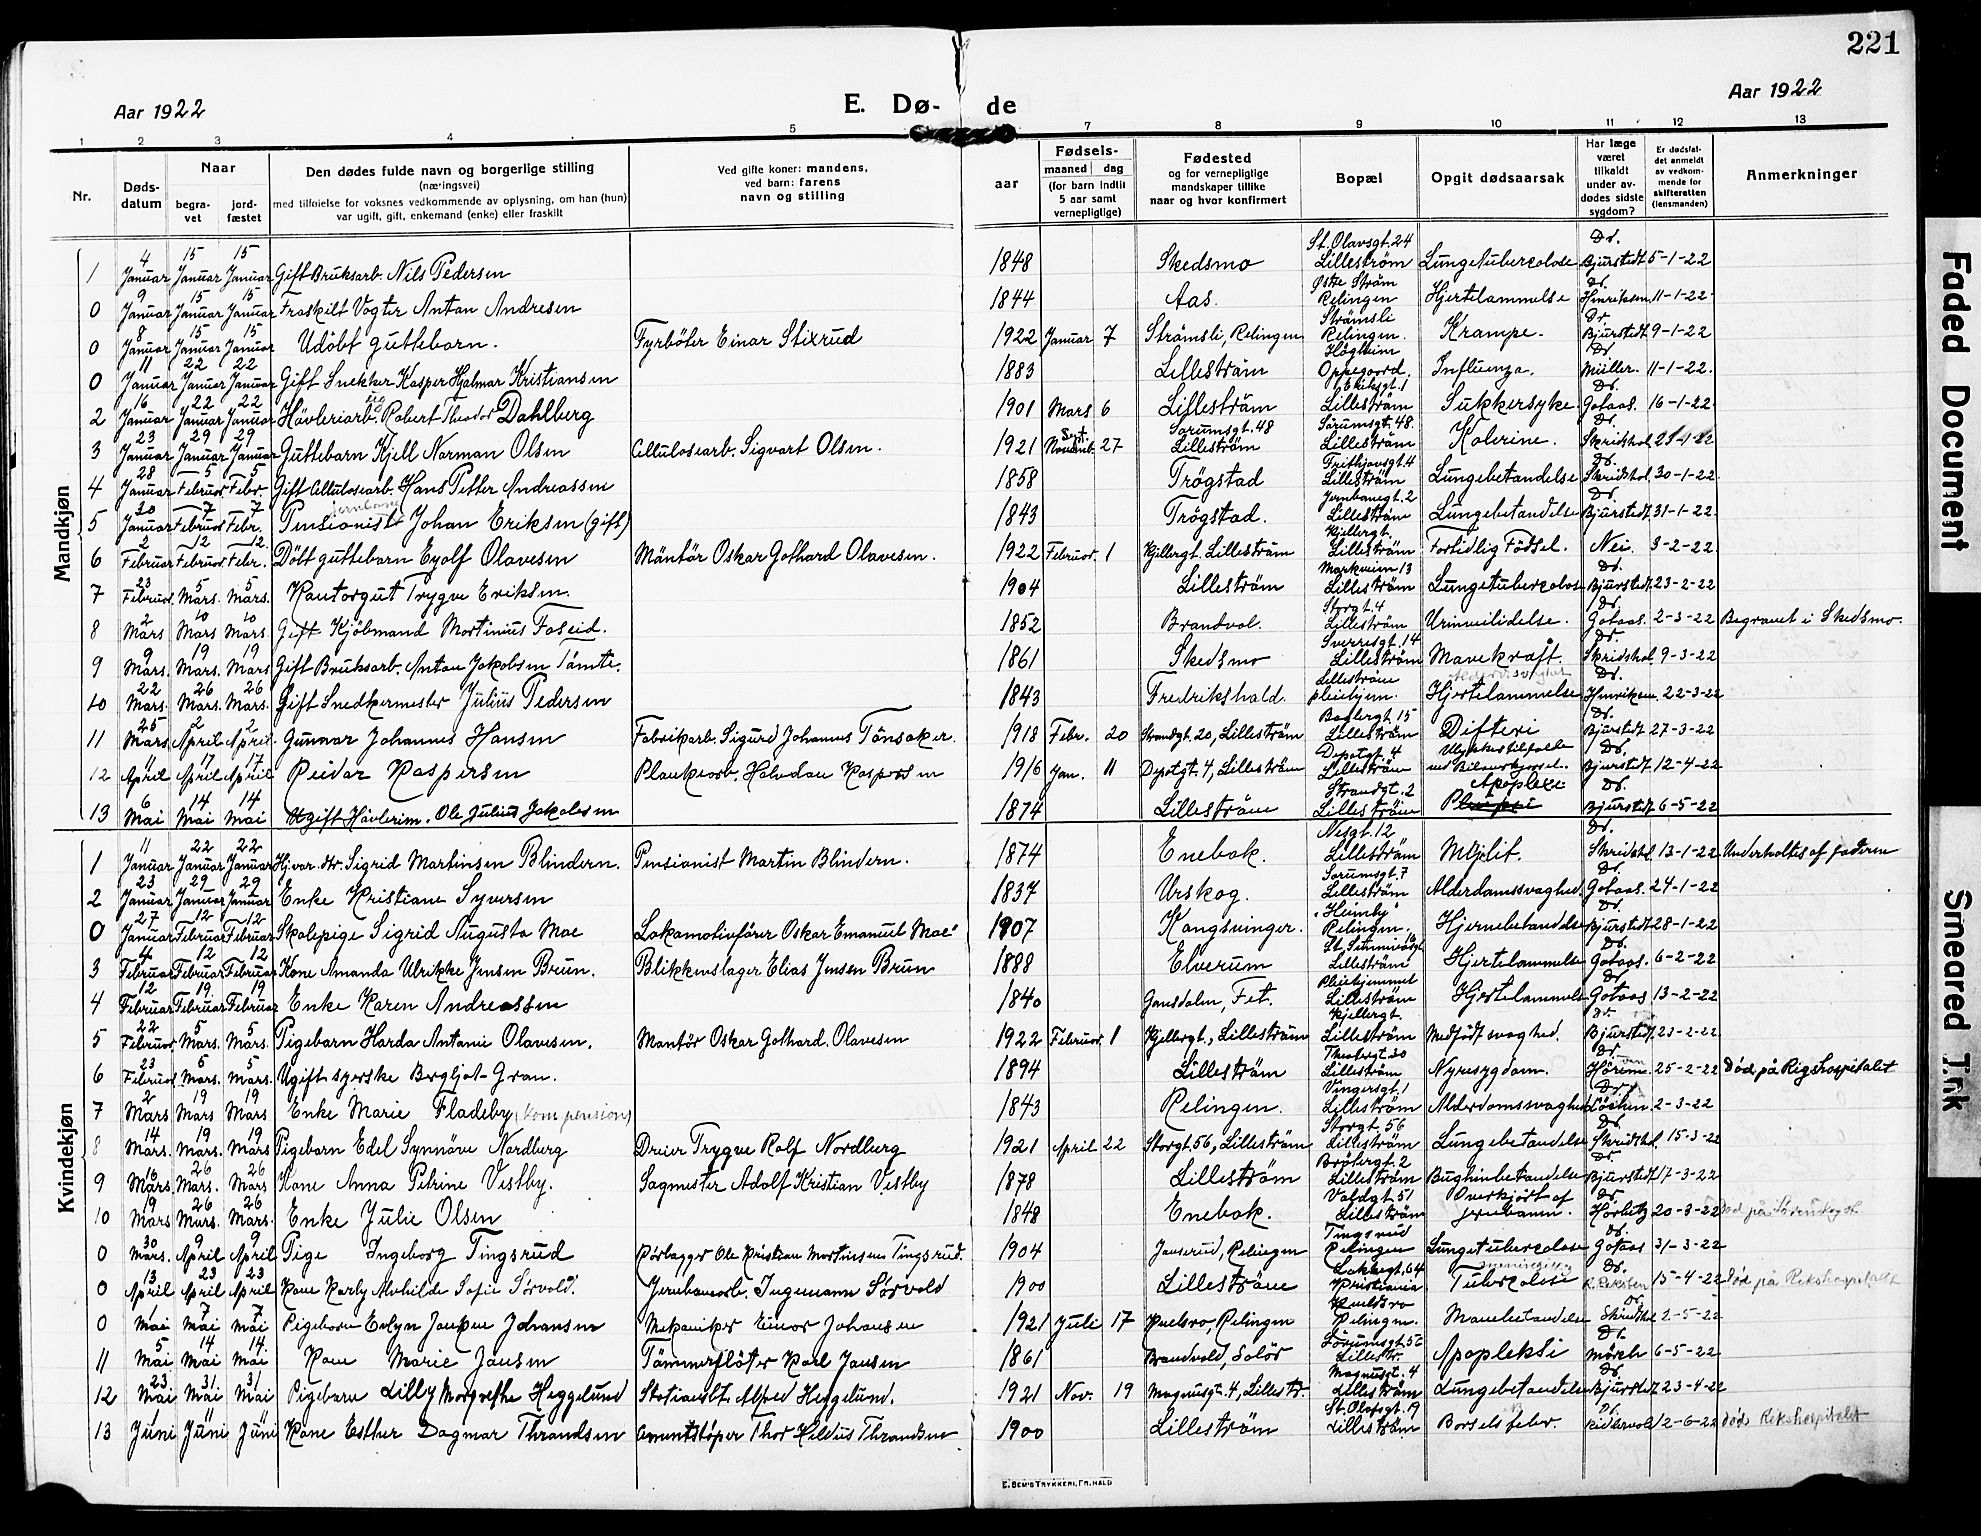 221
Aar 1922
E. Dø- de
Aar 1922
1 2 3 4 5 7 8 9 10 11 12 13
Nr.
Døds-datum
Naar
begra-vet
jord-fæstet
Den dødes fulde navn og borgerlige stilling
(næringsvei)
med tilføielse for voksnes vedkommende av oplysning, om han (hun)
var ugift, gift, enkemand (enke) eller fraskilt
Ved gifte koner: mandens,
ved barn: farens
navn og stilling
aar
Fødsels-
maaned dag
(for barn indtil
5 aar samt
vernepligtige)
Fødested
og for vernepligtige
mandskaper tillike
naar og hvor konfirmert
Bopæl
Opgit dødsaarsak
Har læge
været
tilkaldt
under av-
dødes sidste
sygdom?
Er dødsfal-
det anmeldt
av vedkom-
mende for
skifteretten
(lensmanden)
Anmerkninger
Mandkjøn
1 4 Januar 15 Januar 15 Januar Gift Bruksarb. Nils Pedersen 1848 Skedsmo St. Olavsgt. 24 Lilleström Lungetuberculose Dr. Bjurstedt 5-1-22
0 9 Januar 15 Januar 15 Januar Fraskilt Vogter Anton Andresen 1844 Aas. Østre Ström Relingen Hjertelammelse Dr. Hinriksen 11-1-22
0 8 Januar 15 Januar 15 Januar Udöbt guttebarn. Fyrböter Einar Stixrud 1922 Januar 7 Strömsli, Relingen Strömsli Relingen. Krampe. Dr. Bjurstedt 9-1-22
0 11 Januar 22 Januar 22 Januar Gift Snekker Kasper Hjalmar Kristiansen 1883 Lilleström Högheim Oppegoord. Influenza. Dr. Müller. 11-1-22.
2 16 Januar 22 Januar 22 Januar Hövleriarb. Robert Theodor Dahlberg 1901 Mars 6 Lilleström Lilleström Sukkersyke. Dr. Gotaas. 16-1-22.
3 23 Januar 29 Januar 29 Januar Guttebarn Kjell Norman Olsen Cellulosearb. Sigvart Olsen. 1921 Sept. 27 Sorumsgt. 48 Lilleström Sörumsgt. 48. Lilleström Kolerine. Dr. Skridshol
4 28 Januar 5 Februar 5 Febr. Gift Cellulosearb. Hans Petter Andreassen 1858 Trögstad Frithjovsgt. 4 Lilleström Lungebetændelse Dr. Skridshol 30-1-22
5 30 Januar 7 Februar 7 Febr. Pensionist Johan Eriksen (gift) 1843 Trögstad. Jernbanegt. 2 Lilleström Lungebetændelse Dr. Bjurstedt 31-1-22
6 2 Februar 12 Februar 12 Febr. Döbt guttebarn Eyolf Olavesen Möntör Oskar Gothard Olavesen. 1922 Februar. 1 Kjellergt. Lilleström Kjellergt. Lilleström Fortidlig Födsel. Nei. 3-2-22
7 23 Februar 5 Mars. 5 Mars. Kontorgut Trygve Eriksen. 1904 Lilleström Markveien 13 Lilleström Lungetuberculose Dr. Bjurstedt 23-2-22
8 2 Mars 10 Mars 10 Mars. Gift Kjöbmand Martinius Foseid. 1852 Brandval. Storgt. 4 Lilleström Urinveilidelse. Dr. Gotaas. 2-3-22 Begravet i Skedsmo.
9 9 Mars. 19 Mars 19 Mars Gift Bruksarb. Anton Jakobsen Tömte. 1861 Skedsmo Sverresgt. 14 Lilleström Mavekræft. Dr. Skridshol 9-3-22
10 22 Mars. 26 Mars. 26 Mars. Gift Snedkermester Julius Pedersen 1843 Fredrikshald. Lilleström pleiehjem. Hjertelammelse Dr. Hinriksen 22-3-22
11 25 Mars 2 April 2 April. Gunnar Johannes Hansen Fabrikarb. Sigurd Johannes Tönsaker. 1918 Febr. 20 Strandgt. 20, Lilleström 15 Lilleström Difteri Dr. Bjurstedt 27-3-22
12 11 April 17 April 17 April Reidar Kaspersen Plankearb. Halvdan Kaspersen 1916 Jan. 11 Depotgt. 4, Lilleström Depotgt. 4 Lilleström Ulykkestilfælde Dr. Bjurstedt 12-4-22
13 6 Mai 14 Mai 14 Mai Ugift Hövlerim. Ole Julius Jakobsen 1874 Lilleström Strandgt. 2 Lilleström Apoplexi Dr. Bjurstedt 6-5-22
Kvindekjøn
1 11 Januar 22 Januar 22 Januar Sigrid Martinsen Blindern. Pensionist Martin Blindern. 1874 Enebak. Nesgt. 12 Lilleström Myelit. Dr. Skridshl 13-1-22 Underholtes af faderen
2 23 Januar 29 Januar 29 Januar Enke Kristiane Syversen 1837 Urskog. Sorumsgt. 7 Lilleström Alderdomssvaghed Dr. Gotaas. 24-1-22
0 27 Januar 12 Februar 12 Februar Skolepige Sigrid Augusta Moe Lokomotivförer Oskar Emanuel Moe 1907 Kongsvinger. "Heimby" Relingen. Hjernebetændelse Dr. Bjurstedt 28-1-22
3 4 Februar 12 Februar 12 Februar Kone Amanda Ulrikke Jensen Brun. Blikkenslager Elias Jensen Brun 1888 Elverum Lilleström Hjertelammelse Dr. Gotaas. 6-2-22
4 12 Februar 19 Februar 19 Februar Enke Karen Andreassen 1840 Gansdalen, Fet. Pleiehjemmet Lilleström Hjertelammelse Dr. Gotaas 13-2-22
5 22 Februar 5 Mars. 5 Mars. Pigebarn Harda Antonie Olavesen. Montör Oskar Gothard. Olavesen 1922 Februar. 1 Kjellergt., Lilleström Kjellergt. Lilleström Medfödt svaghed. Dr. Bjurstedt. 23-2-22
6 23 Februar 5 Mars. 5 Mars. Ugift syerske Bergljot Gran. 1894 Lilleström Theatergt. 30 Lilleström Nyresygdom. Dr. 25-2-22 Död på Rigshospitalet
7 2 Mars 19 Mars 19 Mars Enke Marie Fladeby (kom. pension) 1843 Relingen. Vingersgt. 1 Lilleström Alderdomssvaghed Dr. 2-3-22
8 14 Mars. 19 Mars 19 Mars Pigebarn Edel Synnöve Nordberg Dreier Trygve Rolf Nordberg 1921 April 22 Storgt 56, Lilleström Storgt. 56 Lilleström Lungebetændelse Dr. Skridshl. 15-3-22
9 16 Mars. 26 Mars. 26 Mars Kone Anna Petrine Vestby. Sagmester Adolf Kristian Vestby 1878 Lilleström Bröbergt. 2 Lilleström Bughindebetændelse Dr. Bjurstedt 17-3-22
10 19 Mars 26 Mars. 26 Mars. Enke Julie Olsen 1848 Enebak. Voldgt. 51 Lilleström Overkjört af jernbanen. Dr. 20-3-22
0 30 Mars. 9 April 9 April Pige Ingeborg Tingsrud Rörlegger Ole Kristian Mortinsen Tingsrud. 1904 Relingen Tingsrud Relingen Lungetuberculose Dr. Gotaas 31-3-22
0 13 April 23 April 23 April Kone Karly Alvhilde Sofie Sörvold. Jernbanearb. Ingemann Sörvold 1900 Lilleström Lakkegt, 64 Kristiania Tuberculosi Dr. 15-4-22 Död på Rikshospitalet
0 1 Mai 7 Mai 7 Mai Pigebarn Evlyn Johansen Mekaniker Einar Johansen 1921 Juli 17 Relingen Relingen. Mavebetændelse Dr. Skridshl 2-5-22
11 5 Mai 14 Mai 14 Mai Kone Marie Jansen Tömmerflöter Karl Jansen 1861 Brandvold, Solör Sörumsgt. 56 Lillestr. Apopleksi Dr. Mörch 6-5-22
12 23 Mai 31 Mai 31 Mai Pigebarn Lilly Margrethe Heggelund Alfred Heggelund. 1921 Nov. 19 Magnusgt. 4, Lillestr. Magnusgt. 4 Lilleström Lungebetændelse Dr. Bjurstedt 23-4-22
13 Juni Juni Juni Kone Esther Dagmar Thrandsen Thor Hildus Thrandsen 1900 Lilleström St. Olafsgt. 19 Lilleström Barselsfeber. Dr. 12-6-22 död Rikshospitalet
E. SEM'S TRYKKERI, FR.HALD
Faded Document
Smeared Ink